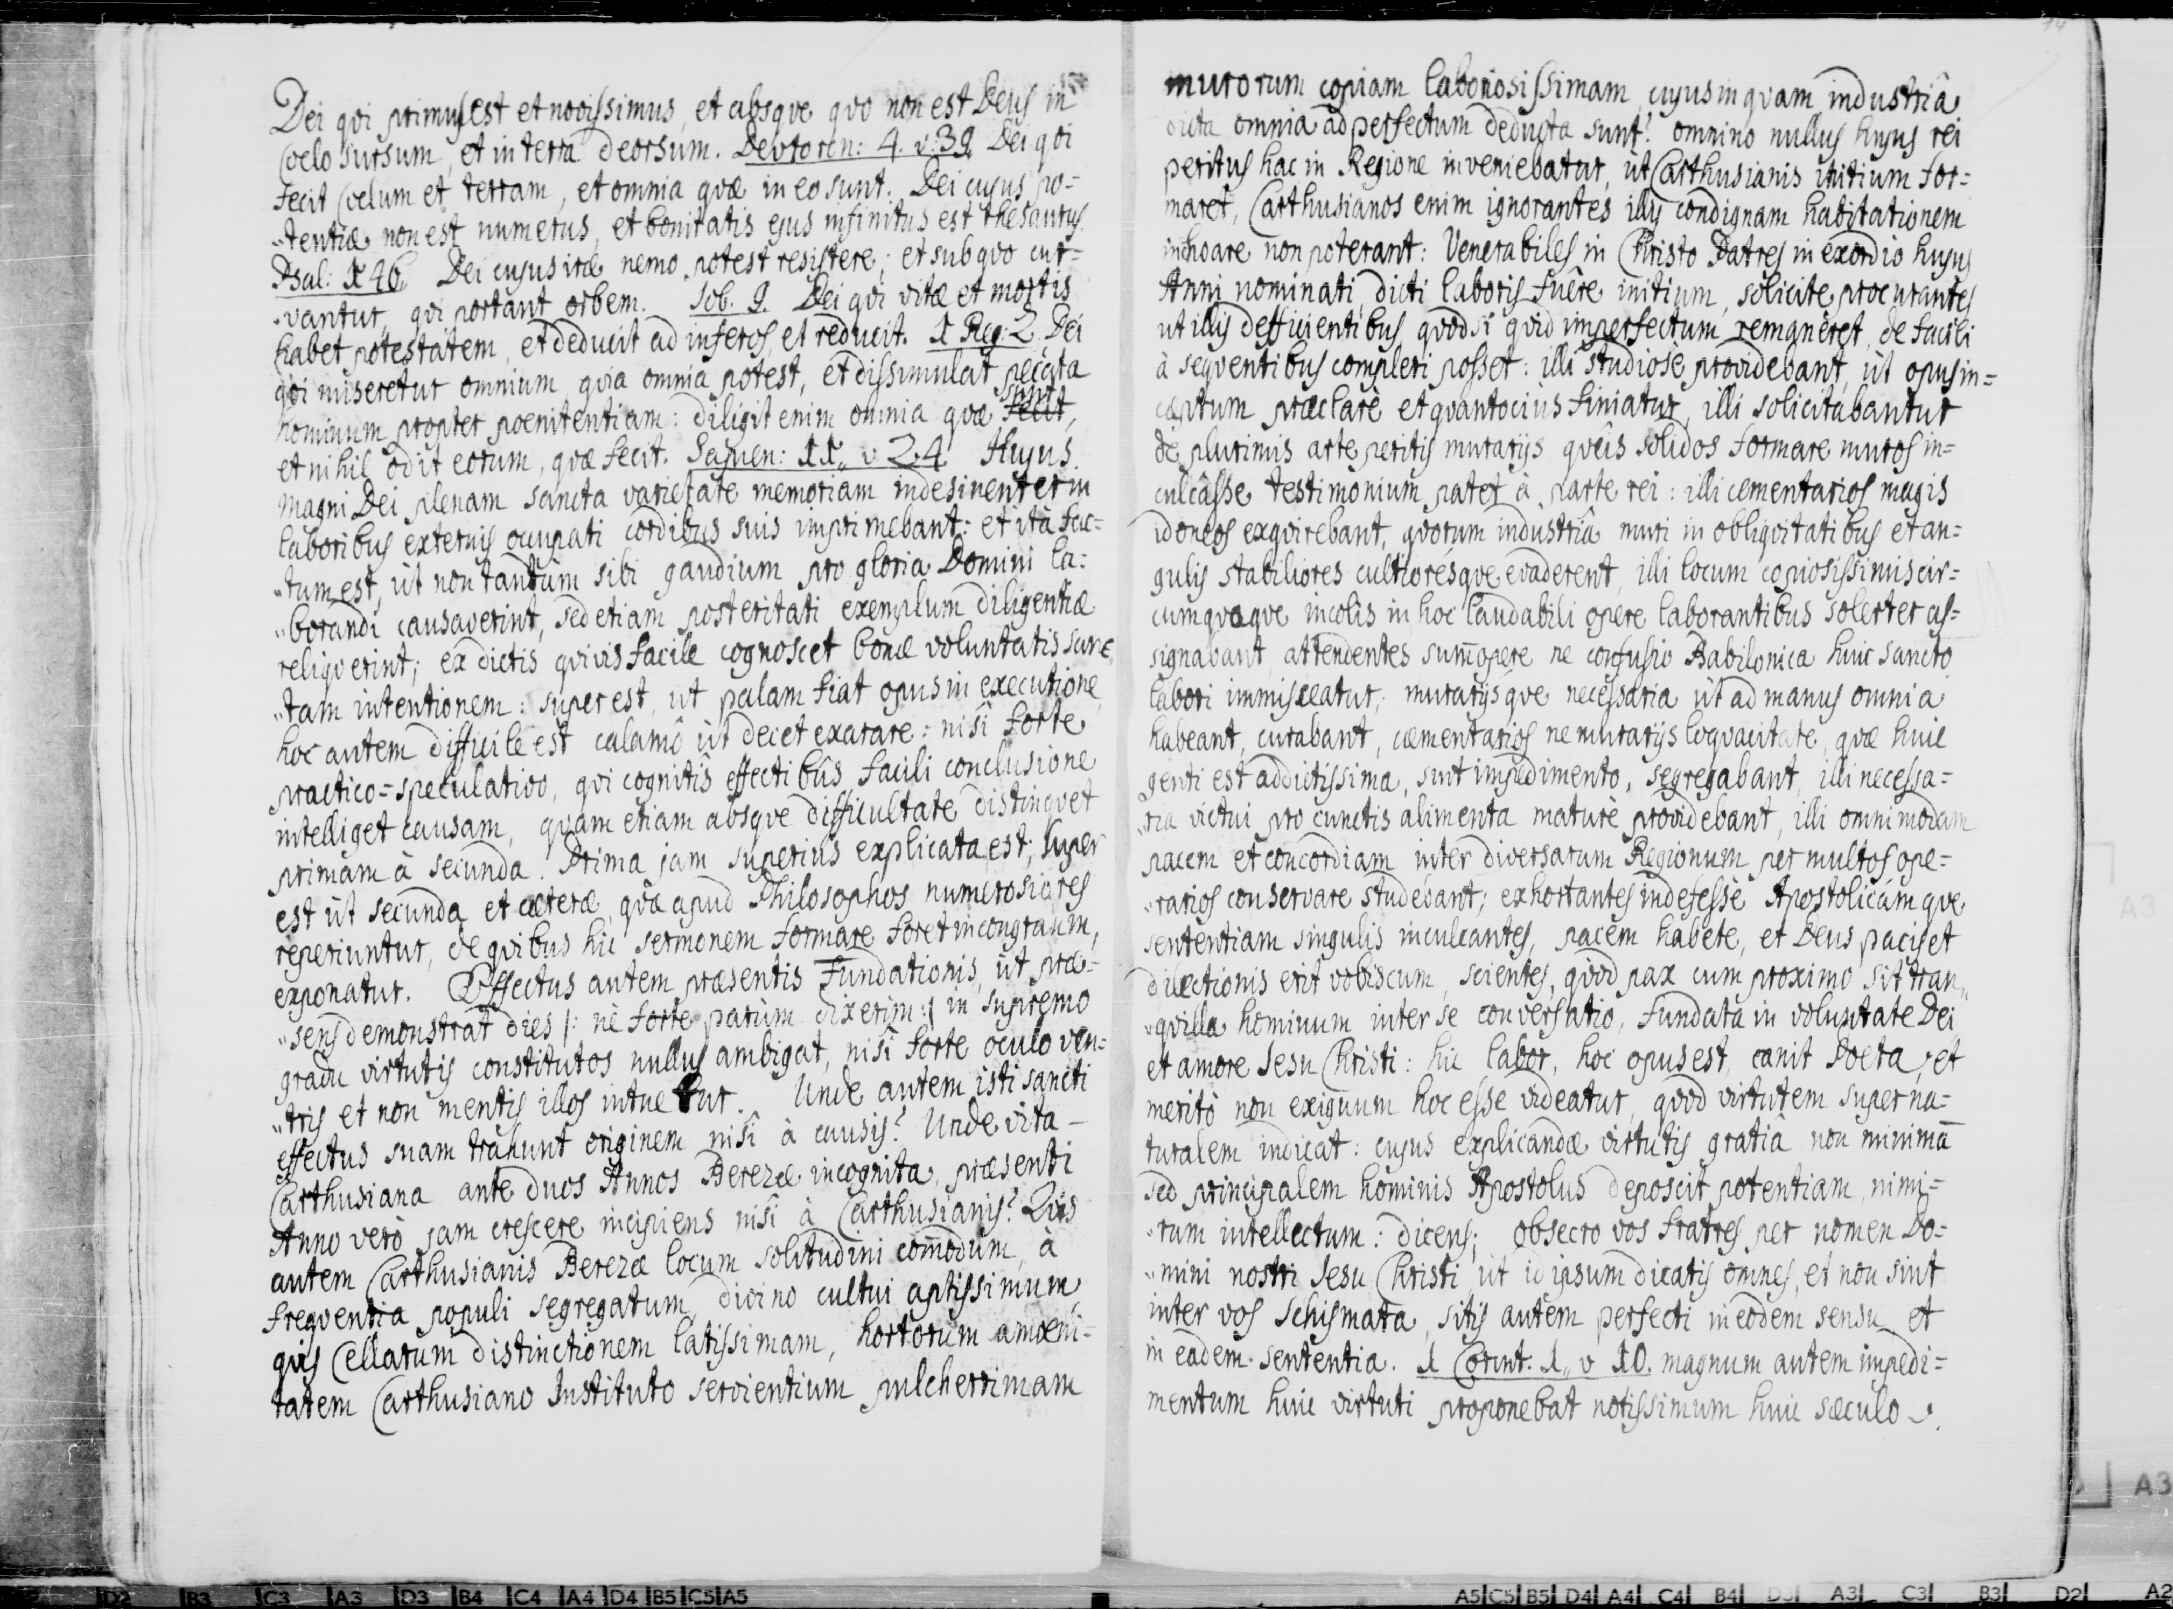 Dei qvi primus est et novissimus, et absqve qvo non est Deus in
Coelo sursum, et in terra deorsum. Devtoren: 4. v: 39. Dei qvi
fecit Coelum et terram, et omnia qvæ in eo sunt. Dei cujus po=
"tentiæ non est numerus, et bonitatis ejus infinitus est thesaurus.
Psal: 146. Dei cujus iræ nemo potest resistere, et sub qvo cur=
"vantur, qvi portant orbem. Job. 9. Dei qvi vitæ et mortis
habet potestatem, et deducit ad inferos, et reducit. 1 Reg: 2. Dei
qvi miseretur omnium qvia omnia potest, et dissimulat peccata
hominum propter poenitentiam: diligit enim omnia qvæ fecit, sunt
et nihil odit eorum, qvæ fecit. Sapien: 11,, v: 24. Hujus
magni Dei plenam sancta varietate memoriam indesinenter in
laboribus externis occupati cordibus suis imprimebant: et ità fac=
"tum est, ùt non tantùm sibi gaudium pro gloria Domini la=
"borandi causaverint, sed etiam posteritati exemplum diligentiæ
reliqverint; ex dictis qvivis facile cognoscet bonæ voluntatis
"tam intentionem: superest, ut palam fiat opus in executione,
hoc autem difficile est calamô ùt decet exarare: nisî forte
practico=speculativo, qvi cognitîs effectibûs facili conclusione
intelliget causam, qvam etiam absqve difficultate distingvet
primam à secunda. Prima jam superiùs explicata est; super
est ùt secunda et cæteræ, qvæ apud Philosophos numerosiores
reperiuntur, de qvibus hic sermonem formare foret incongruum,
exponatur. Effectus autem præsentis Fundationis, ùt præ=
"sens demonstrat dies /: nè forte parùm dixerim :/ in supremo
gradu virtutis constitutos nullus ambigat, nisî forte oculo ven=
"tris et non mentis illos intuetur. Unde autem isti sancti
effectus suam trahunt originem nisî à causis? Unde vita
Carthusiana ante duos Annos Berezæ incognita, præsenti
Anno verò jam crescere incipiens nisî à Carthusianis? Qvis
autem Carthusianis Berezæ locum solitudini com̄odum, à
freqventia populi segregatum, divino cultui aptissimum,
qvis Cellarum distinctionem latissimam, hortorum amoeni=
tatem Carthusiano Instituto servientium pulcherrimam
murorum copiam laboriosissimam, cujus inqvam industriâ
dicta omnia ad perfectum deducta sunt? omnino nullus hujus rei
peritus hac in Regione inveniebatur, ùt Carthusianis initium for=
maret, Carthusianos enim ignorantes illis condignam habitationem
inchoare non poterant: Venerabiles in Christo Patres in exordio hujus
Anni nominati, dicti laboris fuêre initium, solicite procurantes
ut illis defficientibus, qvodsi qvid imperfectum remaneret, de facili
à seqventibus compleri posset: illi studiose providebant, ùt opus in=
cæptum præclarè et qvantociùs finiatur, illi solicitabantur
de plurimis arte peritis murarijs qveis solidos formare muros in=
culcâsse testimonium patet à parte rei: illi cementarios magis
idoneos exqvirebant, qvorum industriâ muri in obliqvitatibus et an=
gulis stabiliores cultioresqve evaderent, illi locum copiosissimis cir=
cumqvaqve incolis in hoc laudabili opere laborantibus solerter as=
signabant, attendentes sum̄opere ne confusio Babilonica huic sancto
labori immisceatur, murarijsqve necessaria ùt ad manus omnia
habeant, curabant, cæmentarios ne murarijs loqvacitate, qvæ huic
genti est addictissima, sint impedimento, segregabant, illi necessa=
"ria victui pro cunctis alimenta maturè providebant, illi omnimodam
pacem et concordiam inter diversarum Regionum permultos ope=
"rarios conservare studebant; exhortantes indefessè Apostolicámqve
sententiam singulis inculcantes, pacem habete, et Deus pacis et
dilectionis erit vobiscum, scientes, qvòd pax cum proximo sit tran,,
"qvilla hominum inter se conversatio, fundata in voluntate Dei
et amore Jesu Christi: hic labor, hoc opus est, canit Poeta, et
meritò non exiguum hoc esse videatur, qvòd virtutem superna=
turalem indicat: cujus explicandæ virtutis gratiâ non minimā
sed principalem hominis Apostolus deposcit potentiam, nimi=
"rum intellectum: dicens; obsecro vos fratres per nomen Do=
"mini nostri Jesu Christi, ùt id ipsum dicatis omnes, et non sint
inter vos Schismata, sitis autem perfecti in eodem sensu, et
in eadem sententia. 1 Corint. 1,, v 10. magnum autem impedi=
mentum huic virtuti proponebat notissimum huic sæculo